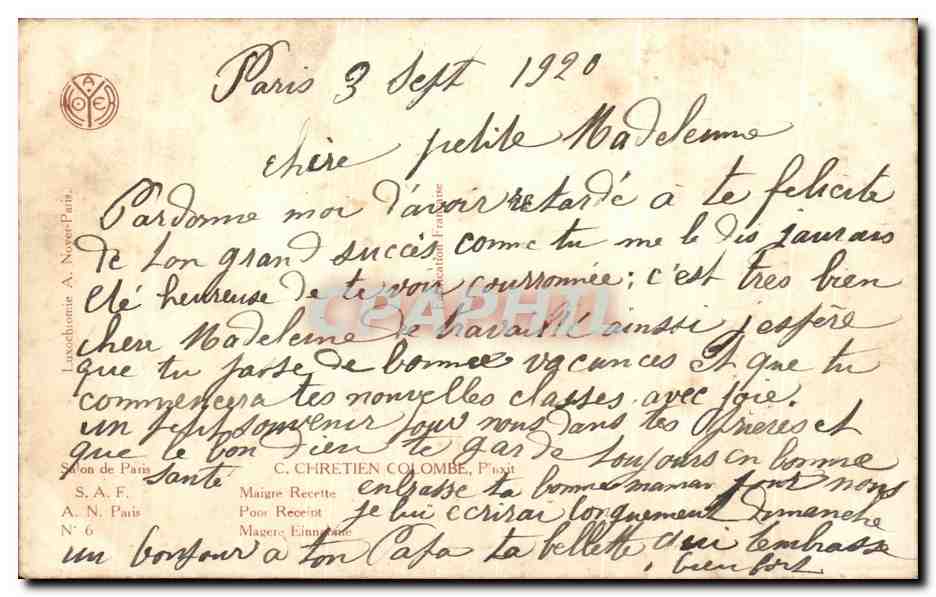 Paris 3 Sept 1920
chère petite Madeleinne
Pardonne moi d'avoir retardé à te felicite
de ton grand succès comme tu me le dis jaurais
été heureuse de te voir courronnée; c'est tres bien
chere Madeleine de travaillé ainsi jespère
que tu passe de bonnee vacances et que tu
commencera tes nouvelles classes avec joie.
un petit souvenir pour nous dans tes prieres et
que le bon dieu te garde toujours en bonne
santé
enbrasse ta bonne maman pour nous
je lui ecrirai longuement Dimanche
un bonjour a ton Papa ta bellette qui t'embrasse
bien fort
A NOYER
Luxochromie A. Noyer-Paris.
Fabrication Française
CPAPHIL
Salon de Paris
S. A. F.
A. N. Paris
N° 6
C. CHRETIEN COLOMBE, Pinxit
Maigre Recette
Poor Receipt
Magere Einnahme